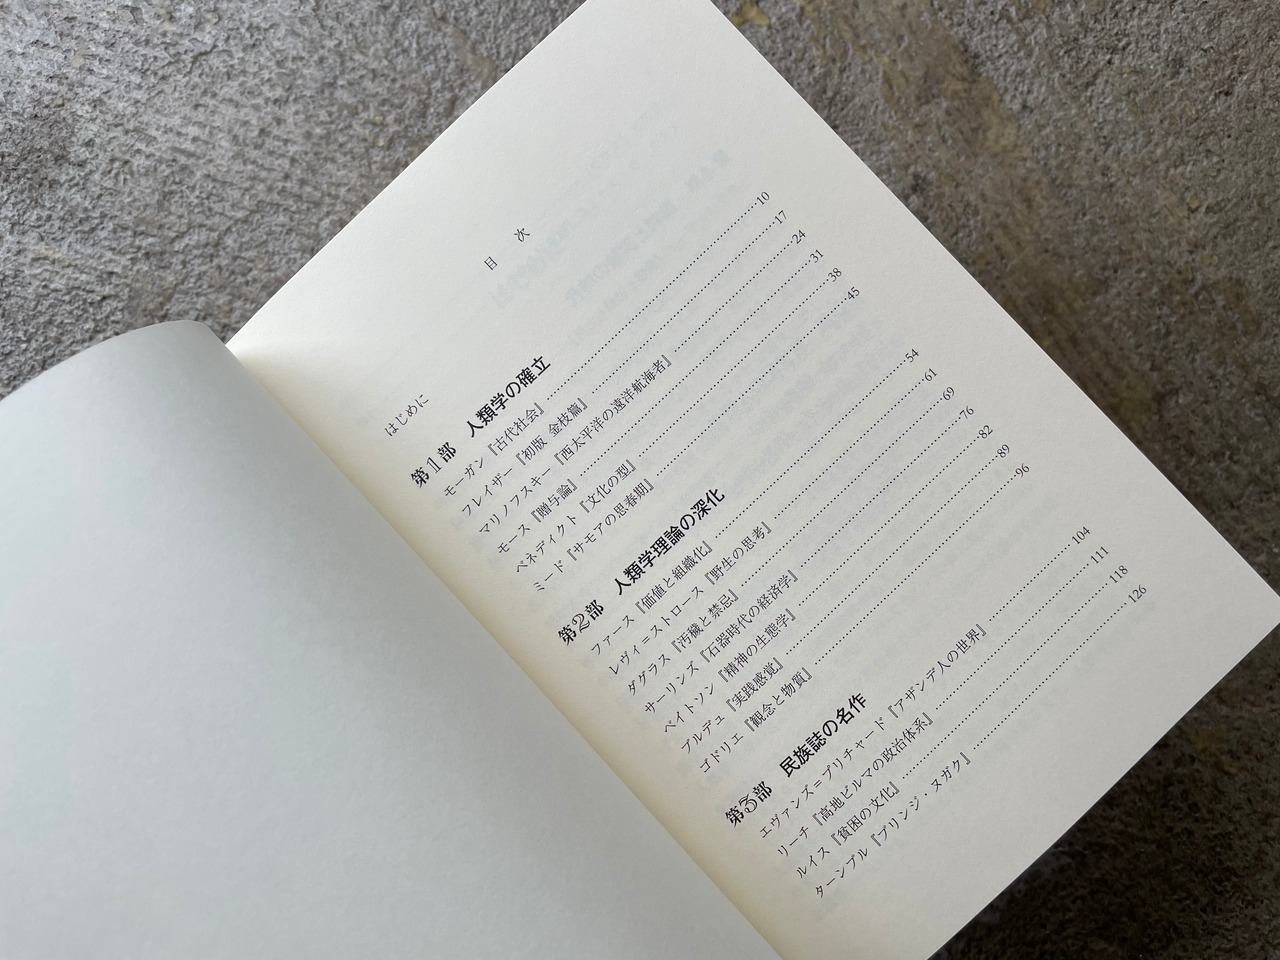 目次
はじめに
第1部 人類学の確立
モーガン『古代社会』……10
フレイザー『初版 金枝篇』……17
マリノフスキー『西太平洋の遠洋航海者』……24
モース『贈与論』……31
ベネディクト『文化の型』……38
ミード『サモアの思春期』……45
第2部 人類学理論の深化
ファース『価値と組織化』……54
レヴィ=ストロース『野生の思考』……61
ダグラス『汚穢と禁忌』……69
サーリンズ『石器時代の経済学』……76
ベイトソン『精神の生態学』……82
ブルデュ『実践感覚』……89
ゴドリエ『観念と物質』……96
第3部 民族誌の名作
エヴァンズ=プリチャード『アザンデ人の世界』……104
リーチ『高地ビルマの政治体系』……111
ルイス『貧困の文化』……118
ターンブル『ブリンジ・ヌガグ』……126